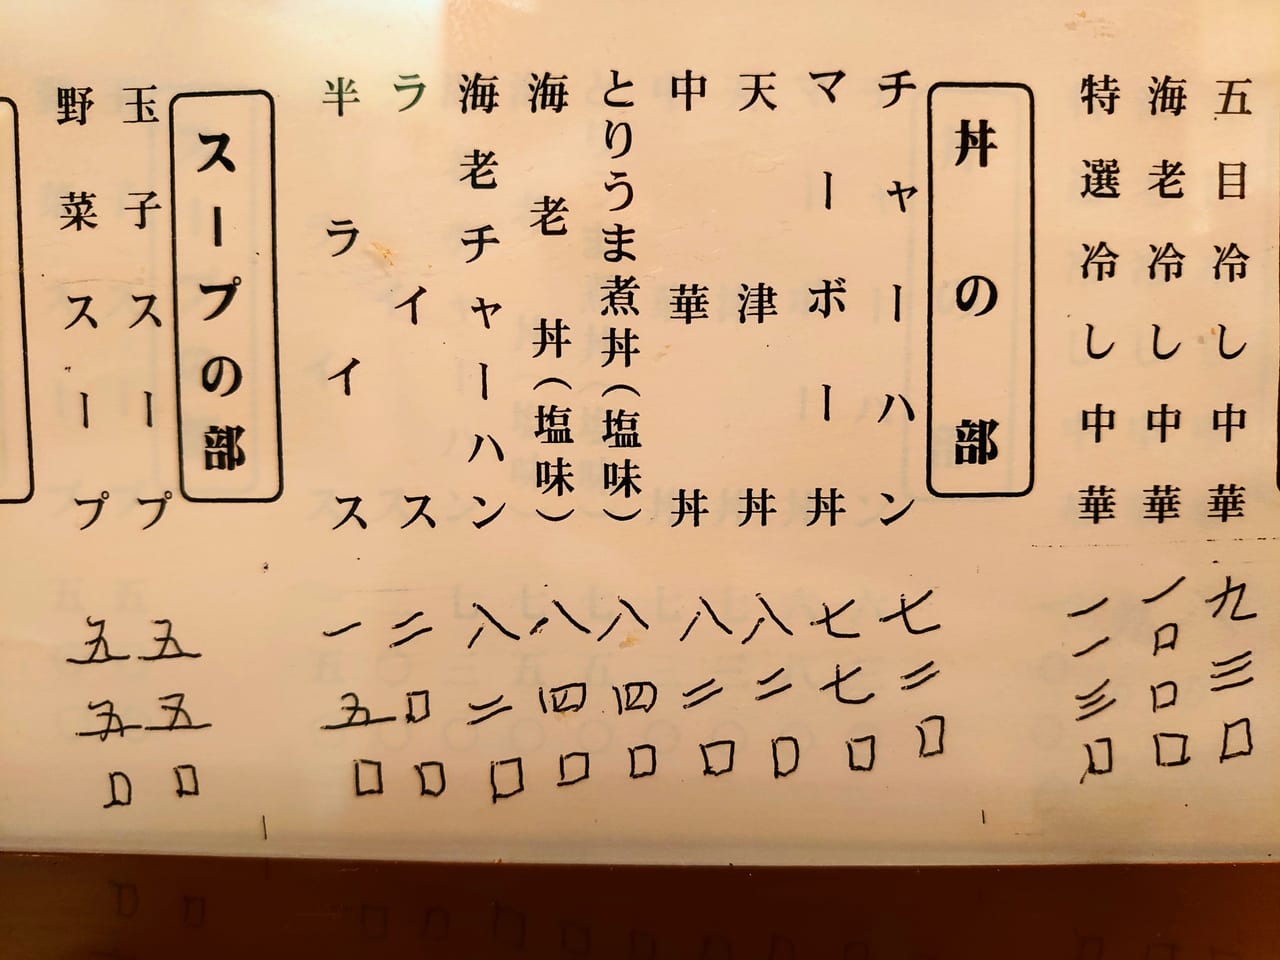 五目冷し中華 九三〇
海老冷し中華 一〇〇〇
特選冷し中華 一一三〇
丼の部
チャーハン 七二〇
マーボー丼 七七〇
天津丼 八二〇
中華丼 八二〇
とりうま煮丼(塩味) 八四〇
海老丼(塩味) 八四〇
海老チャーハン 八二〇
ライス 二〇〇
半ライス 一五〇
スープの部
玉子スープ 五五〇
野菜スープ 五五〇